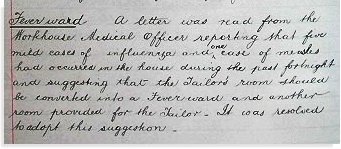 Fever ward A letter was read from the
Workhouse Medical Officer reporting that five
mild cases of influenza and one case of measles
had occurred in the house during the past fortnight
and suggesting that the Tailor's room should
be converted into a Fever ward and another
room provided for the Tailor - It was resolved
to adopt this suggestion -